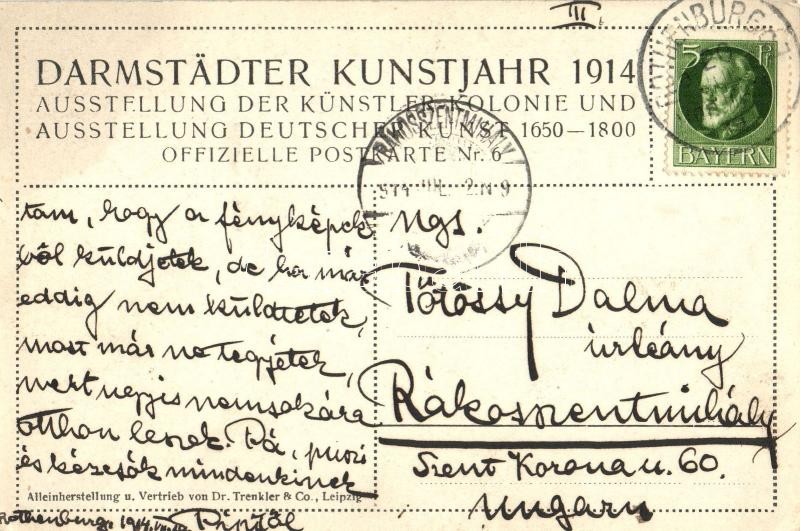 III.
DARMSTÄDTER KUNSTJAHR 1914
AUSSTELLUNG DER KÜNSTLER-KOLONIE UND
AUSSTELLUNG DEUTSCHER KUNST 1650–1800
OFFIZIELLE POSTKARTE Nr. 6
5 Pf
BAYERN
RÁKOSSZENTMIHÁLY
914
tam, hogy a fényképek-
ből küldjetek, de ha már
eddig nem küldtetek,
most már ne tegyétek,
mert úgyis nemsokára
otthon leszek. Pá, puszi
és kézcsók mindenkinek
Ngs.
Törössy Dalma
úrleány
Rákosszentmihály
Szent Korona u. 60.
Ungarn
Alleinherstellung u. Vertrieb von Dr. Trenkler & Co., Leipzig
Rothenburg, 1914.